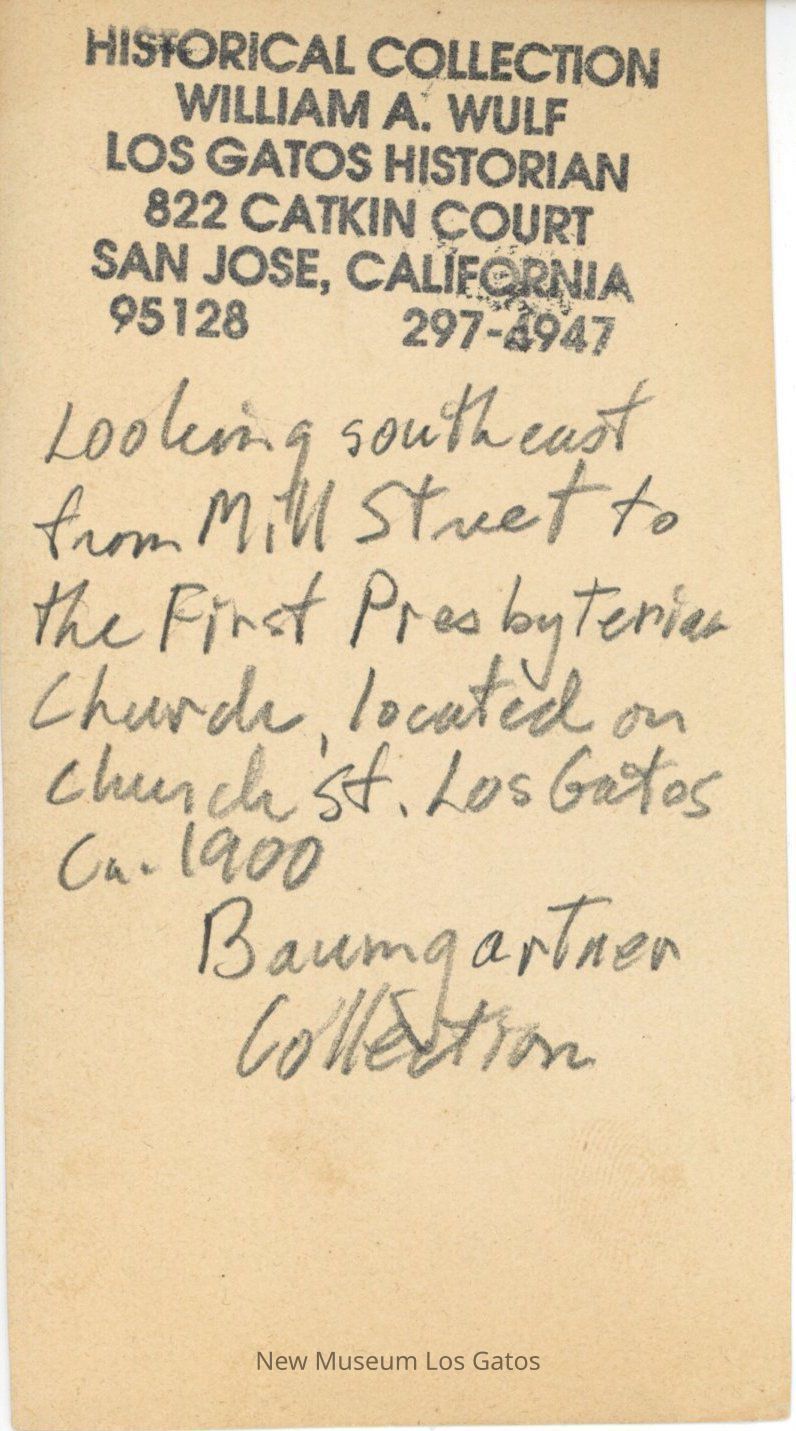 HISTORICAL COLLECTION
WILLIAM A. WULF
LOS GATOS HISTORIAN
822 CATKIN COURT
SAN JOSE, CALIFORNIA
95128 297-4947
Looking southeast
from Mill Street to
the First Presbyterian
Church, located on
Church St. Los Gatos
Ca. 1900
Baumgartner
Collection
New Museum Los Gatos